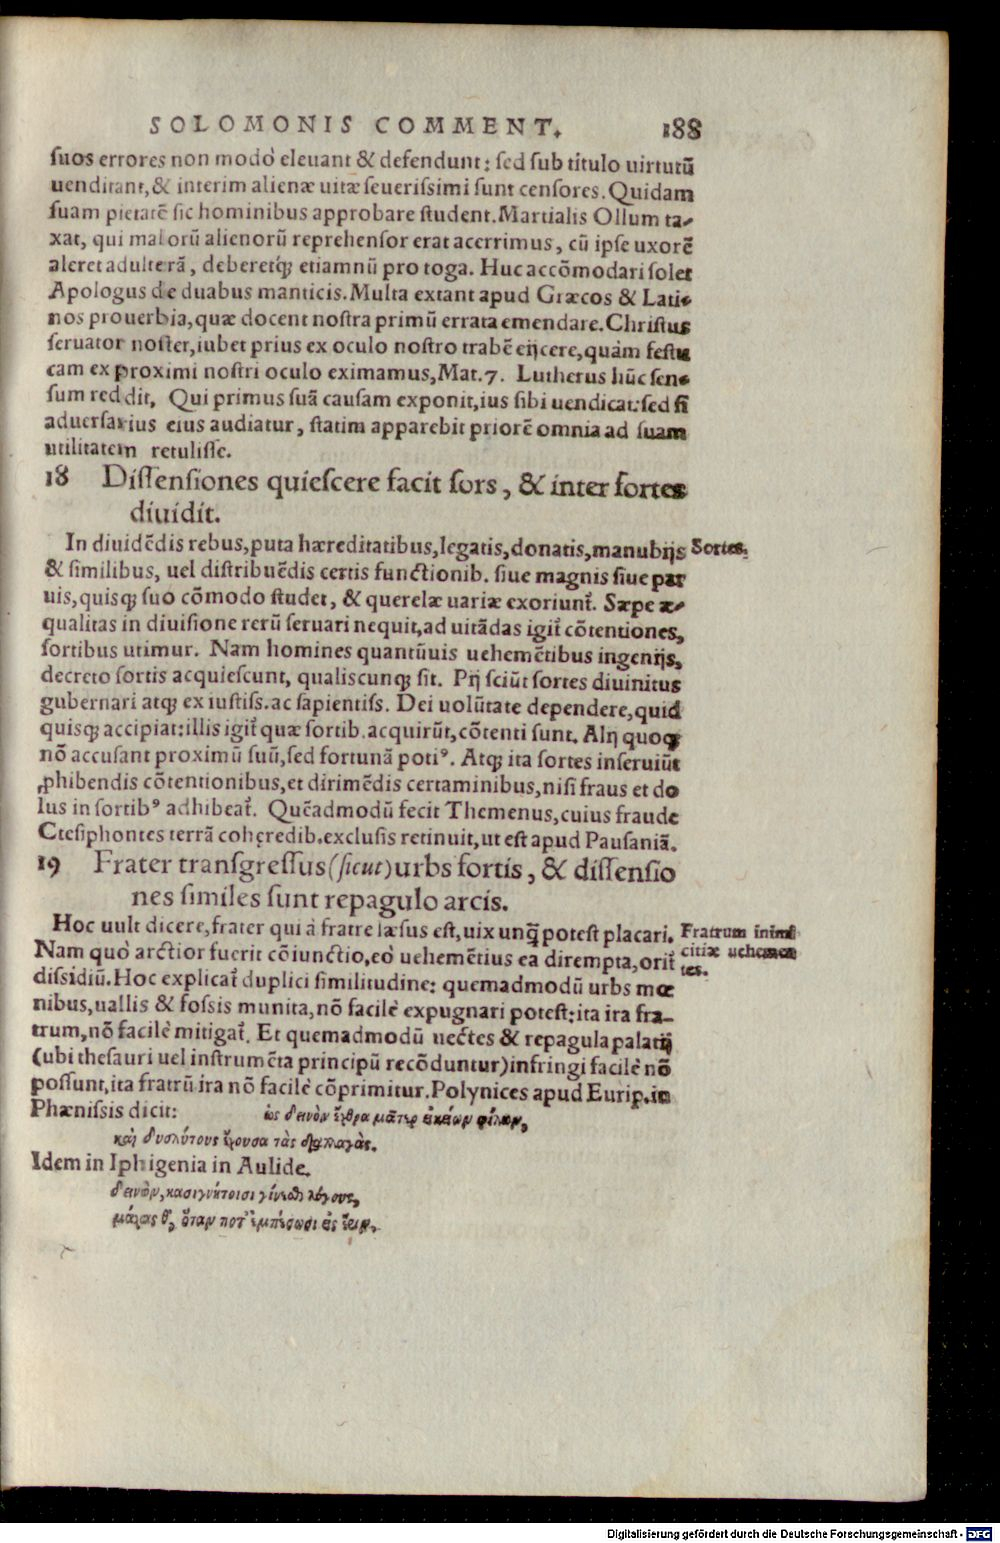 SOLOMONIS COMMENT. 188
suos errores non modò eleuant & defendunt: sed sub titulo uirtutũ
uenditant, & interim alienæ uitæ seuerissimi sunt censores. Quidam
suam pietatẽ sic hominibus approbare student. Martialis Ollum ta-
xat, qui malorũ alienorũ reprehensor erat acerrimus, cũ ipse uxorẽ
aleret adulterã, deberetq́; etiamnũ pro toga. Huc accõmodari solet
Apologus de duabus manticis. Multa extant apud Græcos & Lati-
nos prouerbia, quæ docent nostra primũ errata emendare. Christus
seruator noster, iubet prius ex oculo nostro trabẽ eijcere, quàm festu
cam ex proximi nostri oculo eximamus, Mat. 7. Lutherus hũc sen-
sum reddit. Qui primus suã causam exponit, ius sibi uendicat: sed si
aduersarius eius audiatur, statim apparebit priorẽ omnia ad suam
utilitatem retulisse.
18 Dissensiones quiescere facit sors, & inter fortes
diuidit.
In diuidẽdis rebus, puta hæreditatibus, legatis, donatis, manubijs Sortes.
& similibus, uel distribuẽdis certis functionib. siue magnis siue par
uis, quisq; suo cõmodo studet, & querelæ uariæ exoriunt᷑. Sæpe æ-
qualitas in diuisione rerũ seruari nequit, ad uitãdas igit᷑ cõtentiones,
sortibus utimur. Nam homines quantũuis uehemẽtibus ingenijs,
decreto sortis acquiescunt, qualiscunq; sit. Pij sciũt sortes diuinitus
gubernari atq; ex iustiss. ac sapientiss. Dei uolũtate dependere, quid
quisq; accipiat: illis igit᷑ quæ sortib. acquirũt, cõtenti sunt. Alij quoq;
nõ accusant proximũ suũ, sed fortunã potiꝰ. Atq; ita sortes inseruiũt
ꝓhibendis cõtentionibus, et dirimẽdis certaminibus, nisi fraus et do
lus in sortibꝰ adhibeat᷑. Quẽadmodũ fecit Themenus, cuius fraude
Ctesiphontes terrã cohęredib. exclusis retinuit, ut est apud Pausaniã.
19 Frater transgressus (sicut) urbs fortis, & dissensio
nes similes sunt repagulo arcis.
Hoc uult dicere, frater qui à fratre læsus est, uix unq̃ potest placari. Fratrum inimi
Nam quò arctior fuerit cõiunctio, eò uehemẽtius ea dirempta, orit᷑ citiæ uehemen
dissidiũ. Hoc explicat᷑ duplici similitudine: quemadmodũ urbs mœ tes.
nibus, uallis & fossis munita, nõ facilè expugnari potest: ita ira fra-
trum, nõ facilè mitigat᷑. Et quemadmodũ uectes & repagula palatij
(ubi thesauri uel instrumẽta principũ recõduntur) infringi facilè nõ
possunt, ita fratrũ ira nõ facilè cõprimitur. Polynices apud Eurip. in
Phænissis dicit: ὡς δεινὸν ἔχθρα μᾶτερ οἰκείων φίλων,
καὶ δυσλύτους ἔχουσα τὰς διαλλαγάς.
Idem in Iphigenia in Aulide.
δεινὸν, κασιγνήτοισι γίνεσθαι λόγους,
μάχας θ', ὅταν ποτ' ἐμπέσωσι εἰς ἔριν.
Digitalisierung gefördert durch die Deutsche Forschungsgemeinschaft - DFG